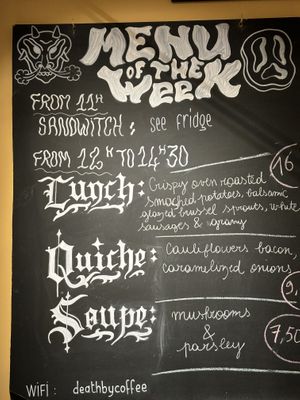 MENU
OF THE
WEEK
FROM 11H
SANDWITCH : see fridge
FROM 12H TO 14H30
16
Lunch: Crispy oven roasted
smached potatoes, balsamic
glazed brussel sprouts, white
sausages & gravy
Quiche: Cauliflowers bacon,
caramelized onions
9,
Soupe: mushrooms
&
parsley
7,50
WiFi : deathbycoffee